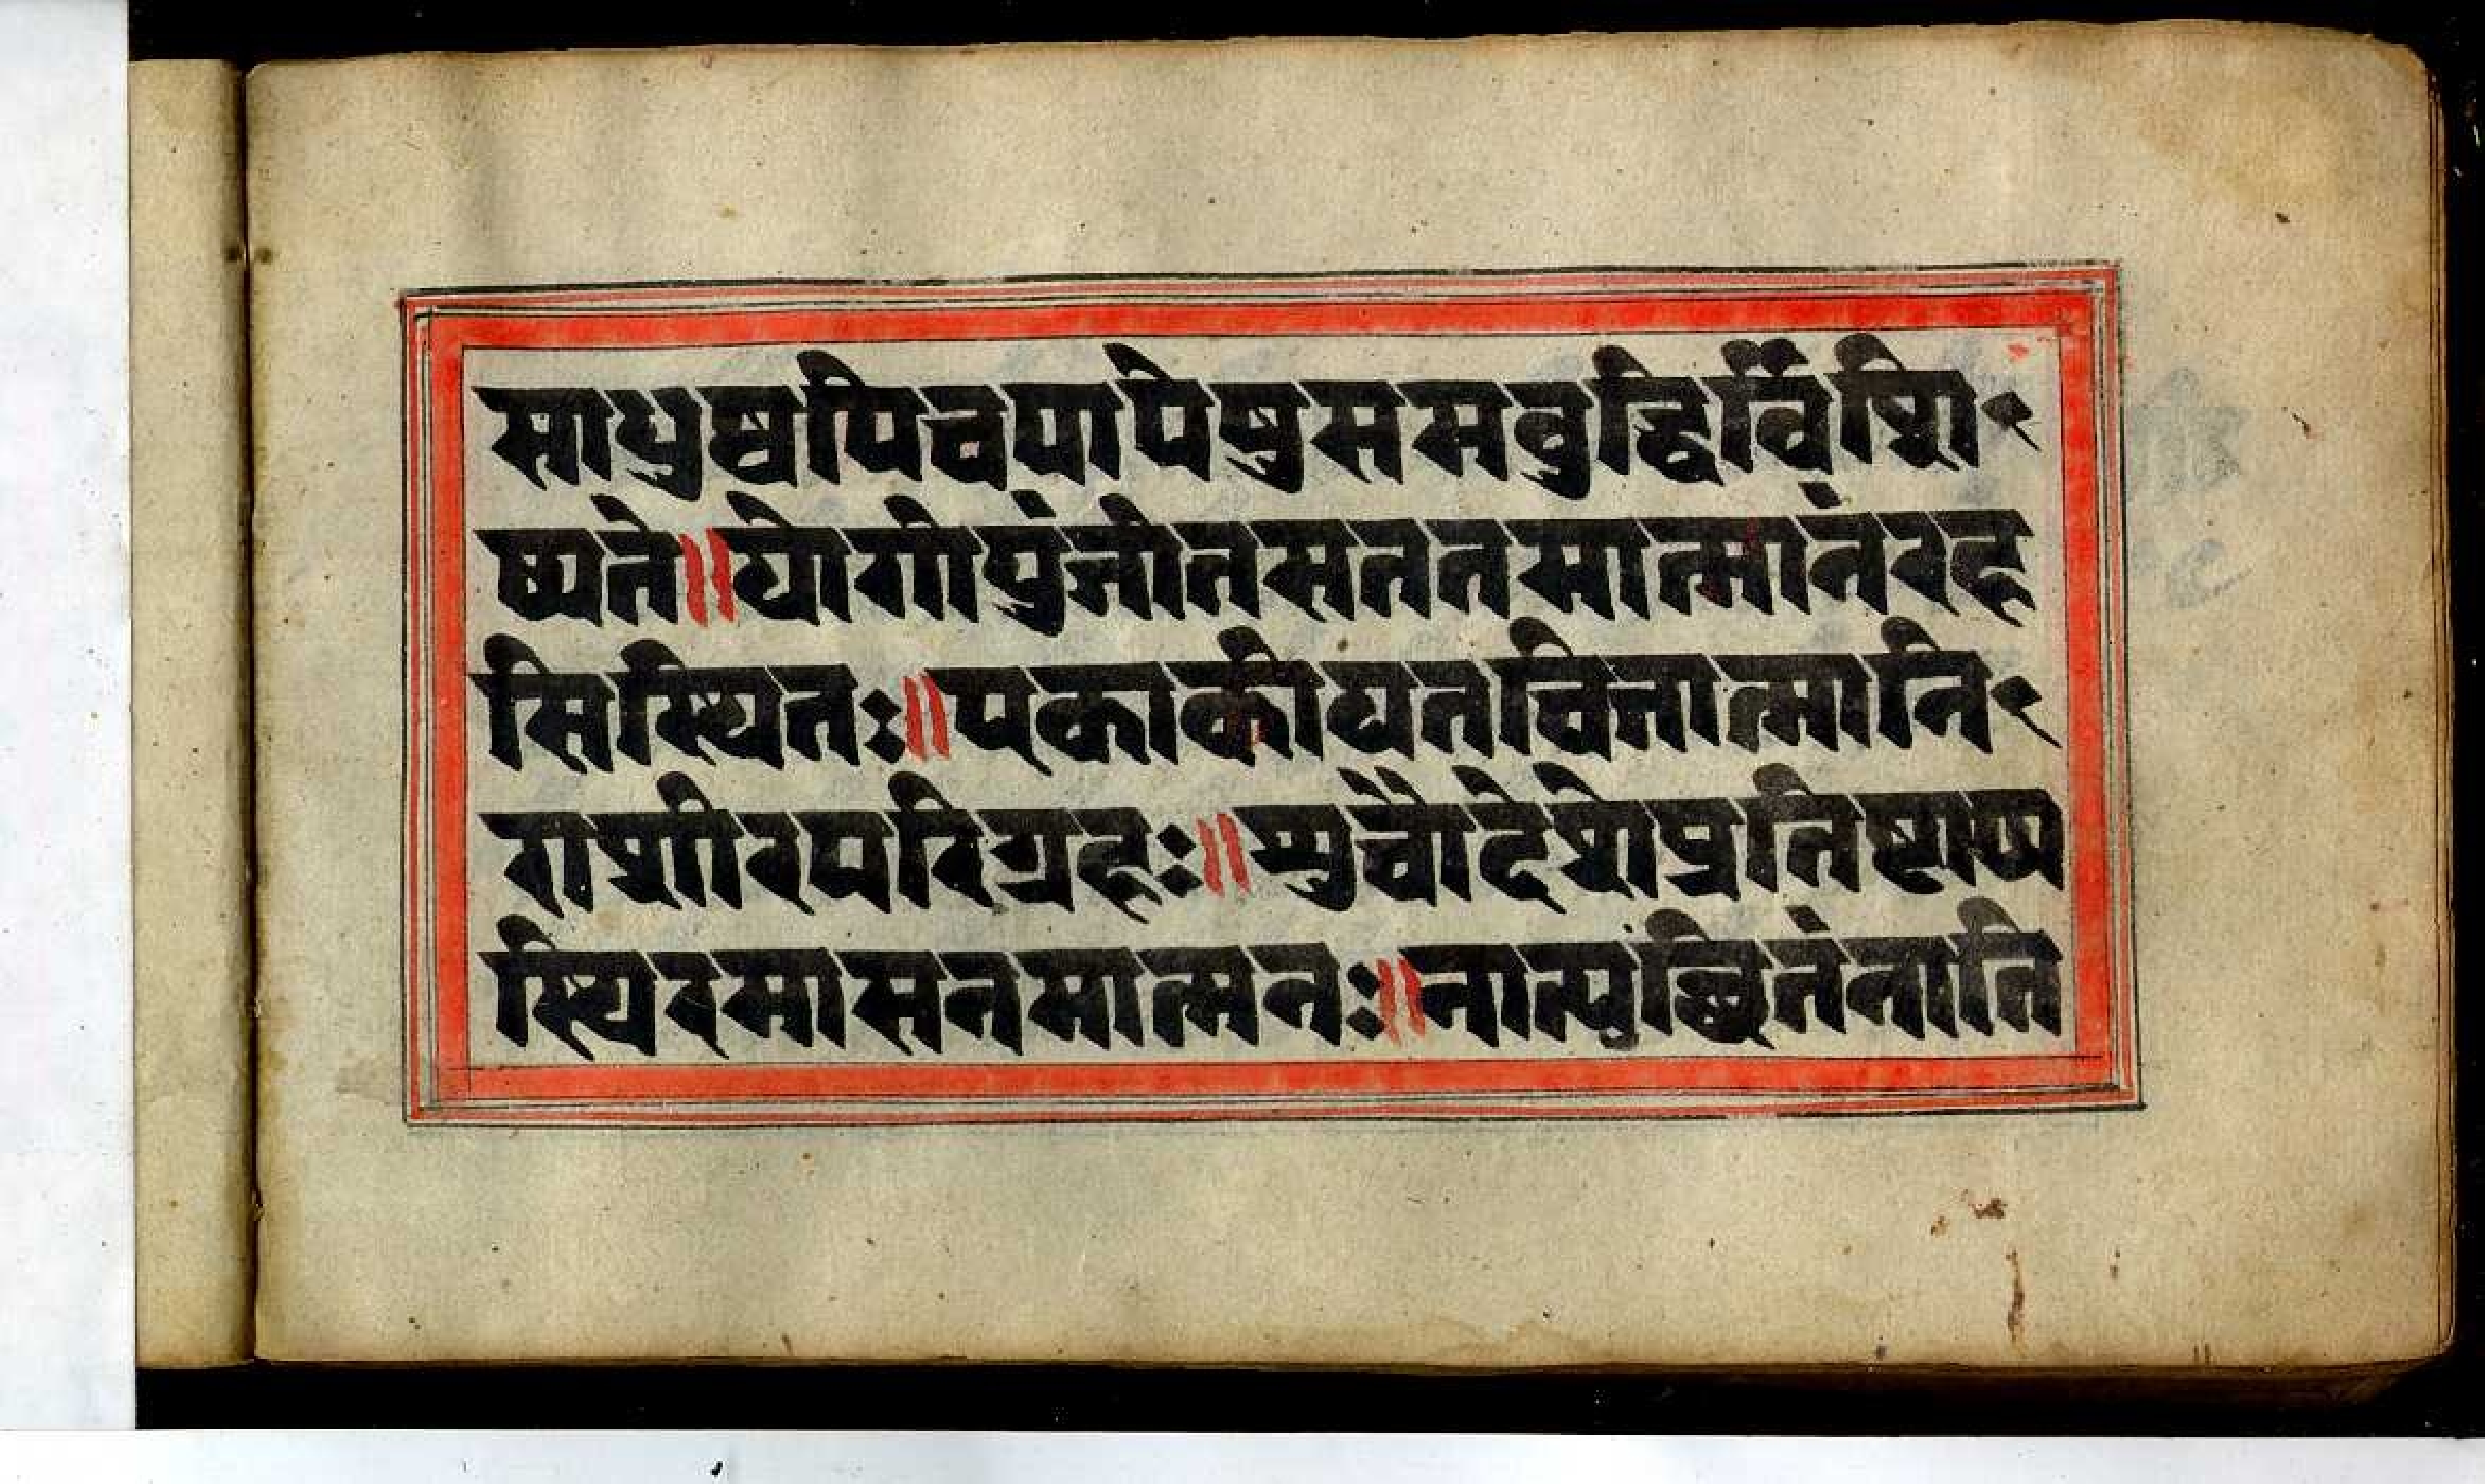 साधुष्वपिचपापेषुसमबुद्धिर्विशि
ष्यते॥योगीयुंजीतसततमात्मानंरह
सिस्थितः॥एकाकीयतचित्तात्मानि
राशीरपरिग्रहः॥शुचौदेशेप्रतिष्टाप्य
स्थिरमासनमात्मनः॥नात्युछ्रितंनाति